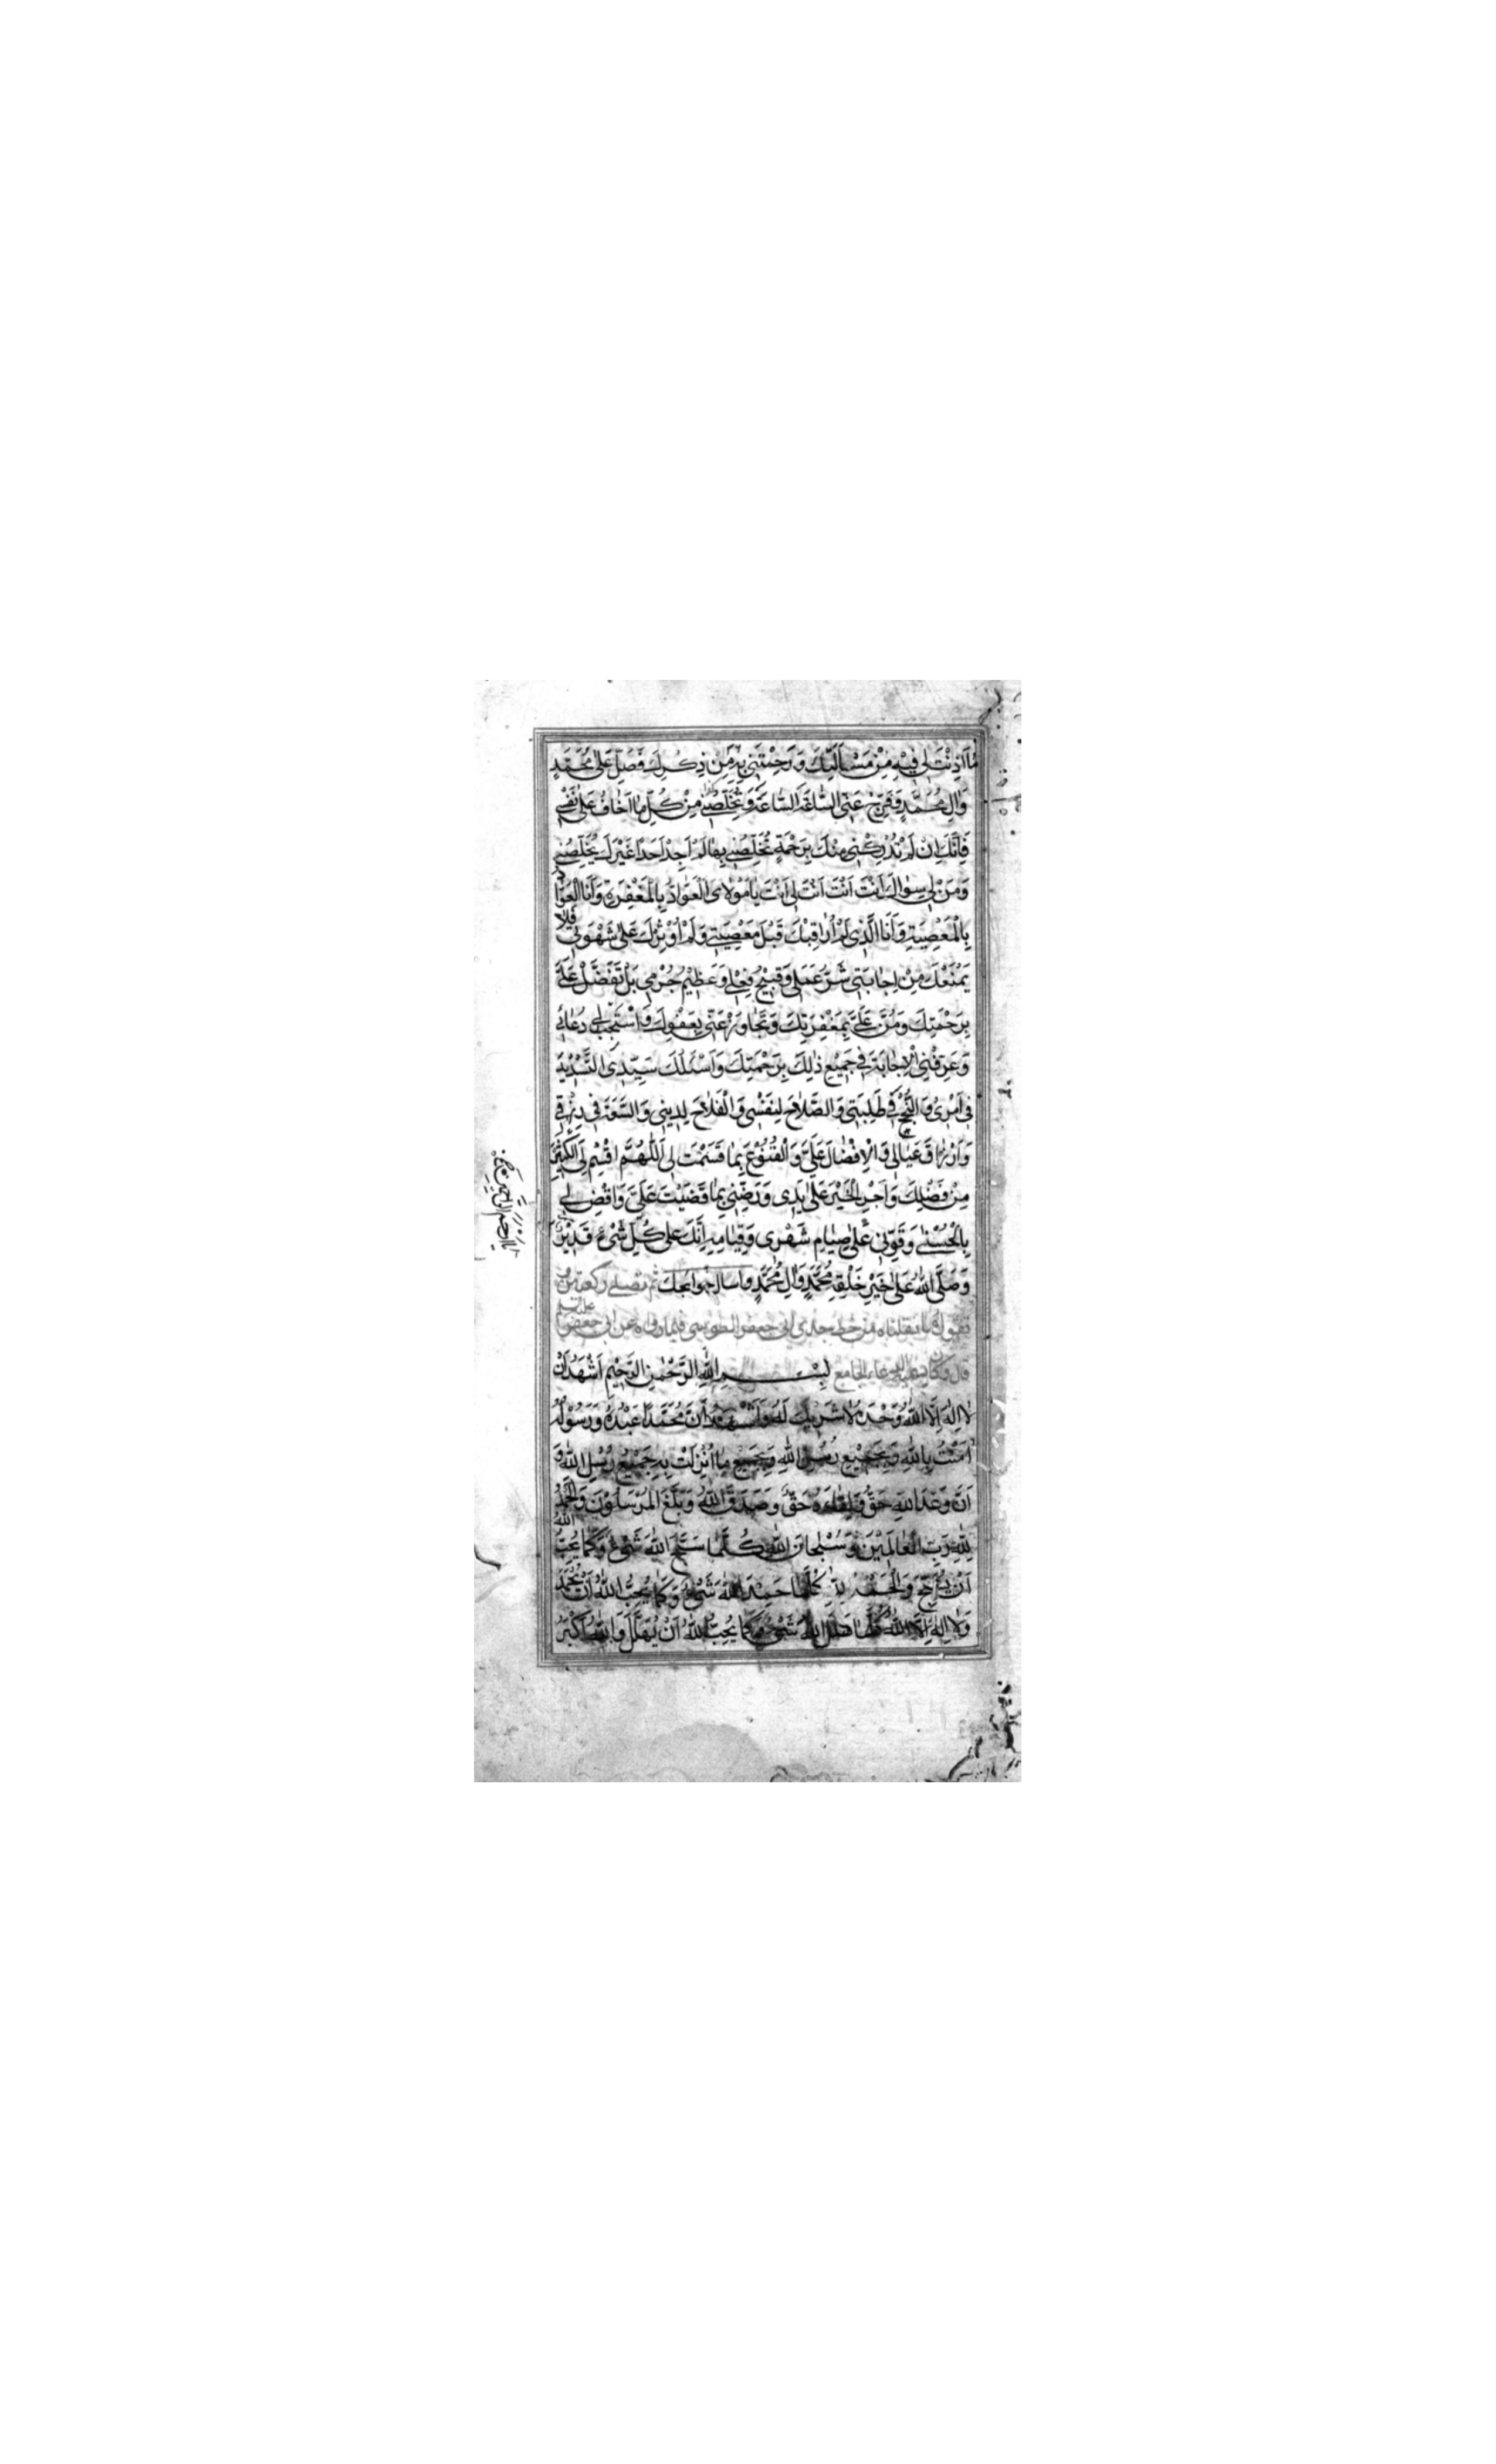 مَا اَذِنْتَ لِي فِيهِ مِنْ مَسْاَلَتِكَ وَ رَحِمْتَنِي بِهِ مِنْ ذِكْرِكَ فَصَلِّ عَلٰى مُحَمَّدٍ
وَاٰلِ مُحَمَّدٍ وَفَرِّجْ عَنِّي السَّاعَةَ السَّاعَةَ وَتُخَلِّصُنِي مِنْ كُلِّ مٰا اَخٰافُ عَلٰى نَفْسِي
فَاِنَّكَ اِنْ لَمْ تُدْرِكْنِي مِنْكَ بِرَحْمَةٍ تُخَلِّصُنِي بِهٰا لَمْ اَجِدْ اَحَدًا غَيْرَكَ يُخَلِّصُنِي
وَمَنْ لِي سِوٰاكَ اَنْتَ اَنْتَ اَنْتَ لِي اَنْتَ يٰا مَوْلٰايَ الْعَوّٰادُ بِالْمَغْفِرَةِ وَاَنَا الْعَوّٰادُ
بِالْمَعْصِيَةِ وَاَنَا الَّذِي لَمْ اُرٰاقِبْكَ قَبْلَ مَعْصِيَتِي وَلَمْ اُوْثِرْكَ عَلٰى شَهْوَتِي فَلا
يَمْنَعْكَ مِنْ اِجٰابَتِي شَرُّ عَمَلِي وَقَبِيْحُ فِعْلِي وَعَظِيْمُ جُرْمِي بَلْ تَفَضَّلْ عَلَيَّ
بِرَحْمَتِكَ وَمُنَّ عَلَيَّ بِمَغْفِرَتِكَ وَتَجٰاوَزْ عَنِّي بِعَفْوِكَ وَاسْتَجِبْ لِي دُعٰائِي
وَعَرِّفْنِي الْاِجٰابَةَ فِي جَمِيْعِ ذٰلِكَ بِرَحْمَتِكَ وَاَسْئَلُكَ سَيِّدِي التَّسْدِيْدَ
فِي اَمْرِي وَالنُّجْحَ فِي طَلِبَتِي وَالصَّلٰاحَ لِنَفْسِي وَالْفَلٰاحَ لِدِيْنِي وَالسَّعَةَ فِي رِزْقِي
وَاَرْزٰاقِ عَيٰالِي وَالْاِفْضٰالَ عَلَيَّ وَالْقُنُوْعَ بِمٰا قَسَمْتَ لِي اَللّٰهُمَّ اقْسِمْ لِيَ الْكَثِيْرَ
مِنْ فَضْلِكَ وَاَجْرِ الْخَيْرَ عَلٰى يَدَيَّ وَرَضِّنِي بِمٰا قَضَيْتَ عَلَيَّ وَاقْضِ لِي
بِالْحُسْنٰى وَقَوِّنِي عَلٰى صِيٰامِ شَهْرِي وَقِيٰامِهِ اِنَّكَ عَلٰى كُلِّ شَيْءٍ قَدِيْرٌ
وَصَلَّى اللّٰهُ عَلٰى خَيْرِ خَلْقِهِ مُحَمَّدٍ وَاٰلِ مُحَمَّدٍ واسال حوائجك ثم تصلي ركعتين
تقول ما نقلناه من خط جدي ابي جعفر الطوسي فيما رواه عن ابي جعفر عليه السلم
قال وكان يدعو الجامع بِسْمِ اللّٰهِ الرَّحْمٰنِ الرَّحِيْمِ اَشْهَدُ اَنْ
لٰا اِلٰهَ اِلَّا اللّٰهُ وَحْدَهُ لٰا شَرِيْكَ لَهُ وَاَشْهَدُ اَنَّ مُحَمَّدًا عَبْدُهُ وَرَسُوْلُهُ
اٰمَنْتُ بِاللّٰهِ وَبِجَمِيْعِ رُسُلِ اللّٰهِ وَبِجَمِيْعِ مٰا اُنْزِلَتْ بِهِ جَمِيْعُ رُسُلِ اللّٰهِ وَ
اَنَّ وَعْدَ اللّٰهِ حَقٌّ وَلِقٰاءَهُ حَقٌّ وَصَدَقَ اللّٰهُ وَبَلَّغَ الْمُرْسَلُوْنَ وَالْحَمْدُ
لِلّٰهِ رَبِّ الْعٰالَمِيْنَ وَسُبْحٰانَ اللّٰهِ كُلَّمٰا سَبَّحَ اللّٰهَ شَيْءٌ وَكَمٰا يُحِبُّ اللّٰهُ
اَنْ يُسَبَّحَ وَالْحَمْدُ لِلّٰهِ كُلَّمٰا حَمِدَ اللّٰهَ شَيْءٌ وَكَمٰا يُحِبُّ اللّٰهُ اَنْ يُحْمَدَ
وَلٰا اِلٰهَ اِلَّا اللّٰهُ كُلَّمٰا هَلَّلَ اللّٰهَ شَيْءٌ وَكَمٰا يُحِبُّ اللّٰهُ اَنْ يُهَلَّلَ وَاللّٰهُ اَكْبَرُ
يا ارحم الراحمين